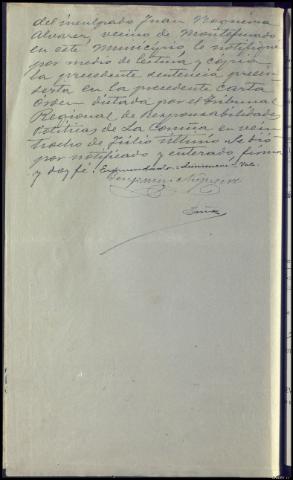 del inculpado Juan Noguerira
Alvarez, vecino de Montefurado
en este Municipio le notifiqué
por medio de lectura y copia
la precedente sentencia preen-
serta en la precedente Carta
orden dictada por el Tribunal
Regional de Responsabilidades
Políticas de La Coruña en vein-
tiocho de Julio último. Se dió
por notificado y enterado, firma
y doy fé. Enmendado = = Vale.